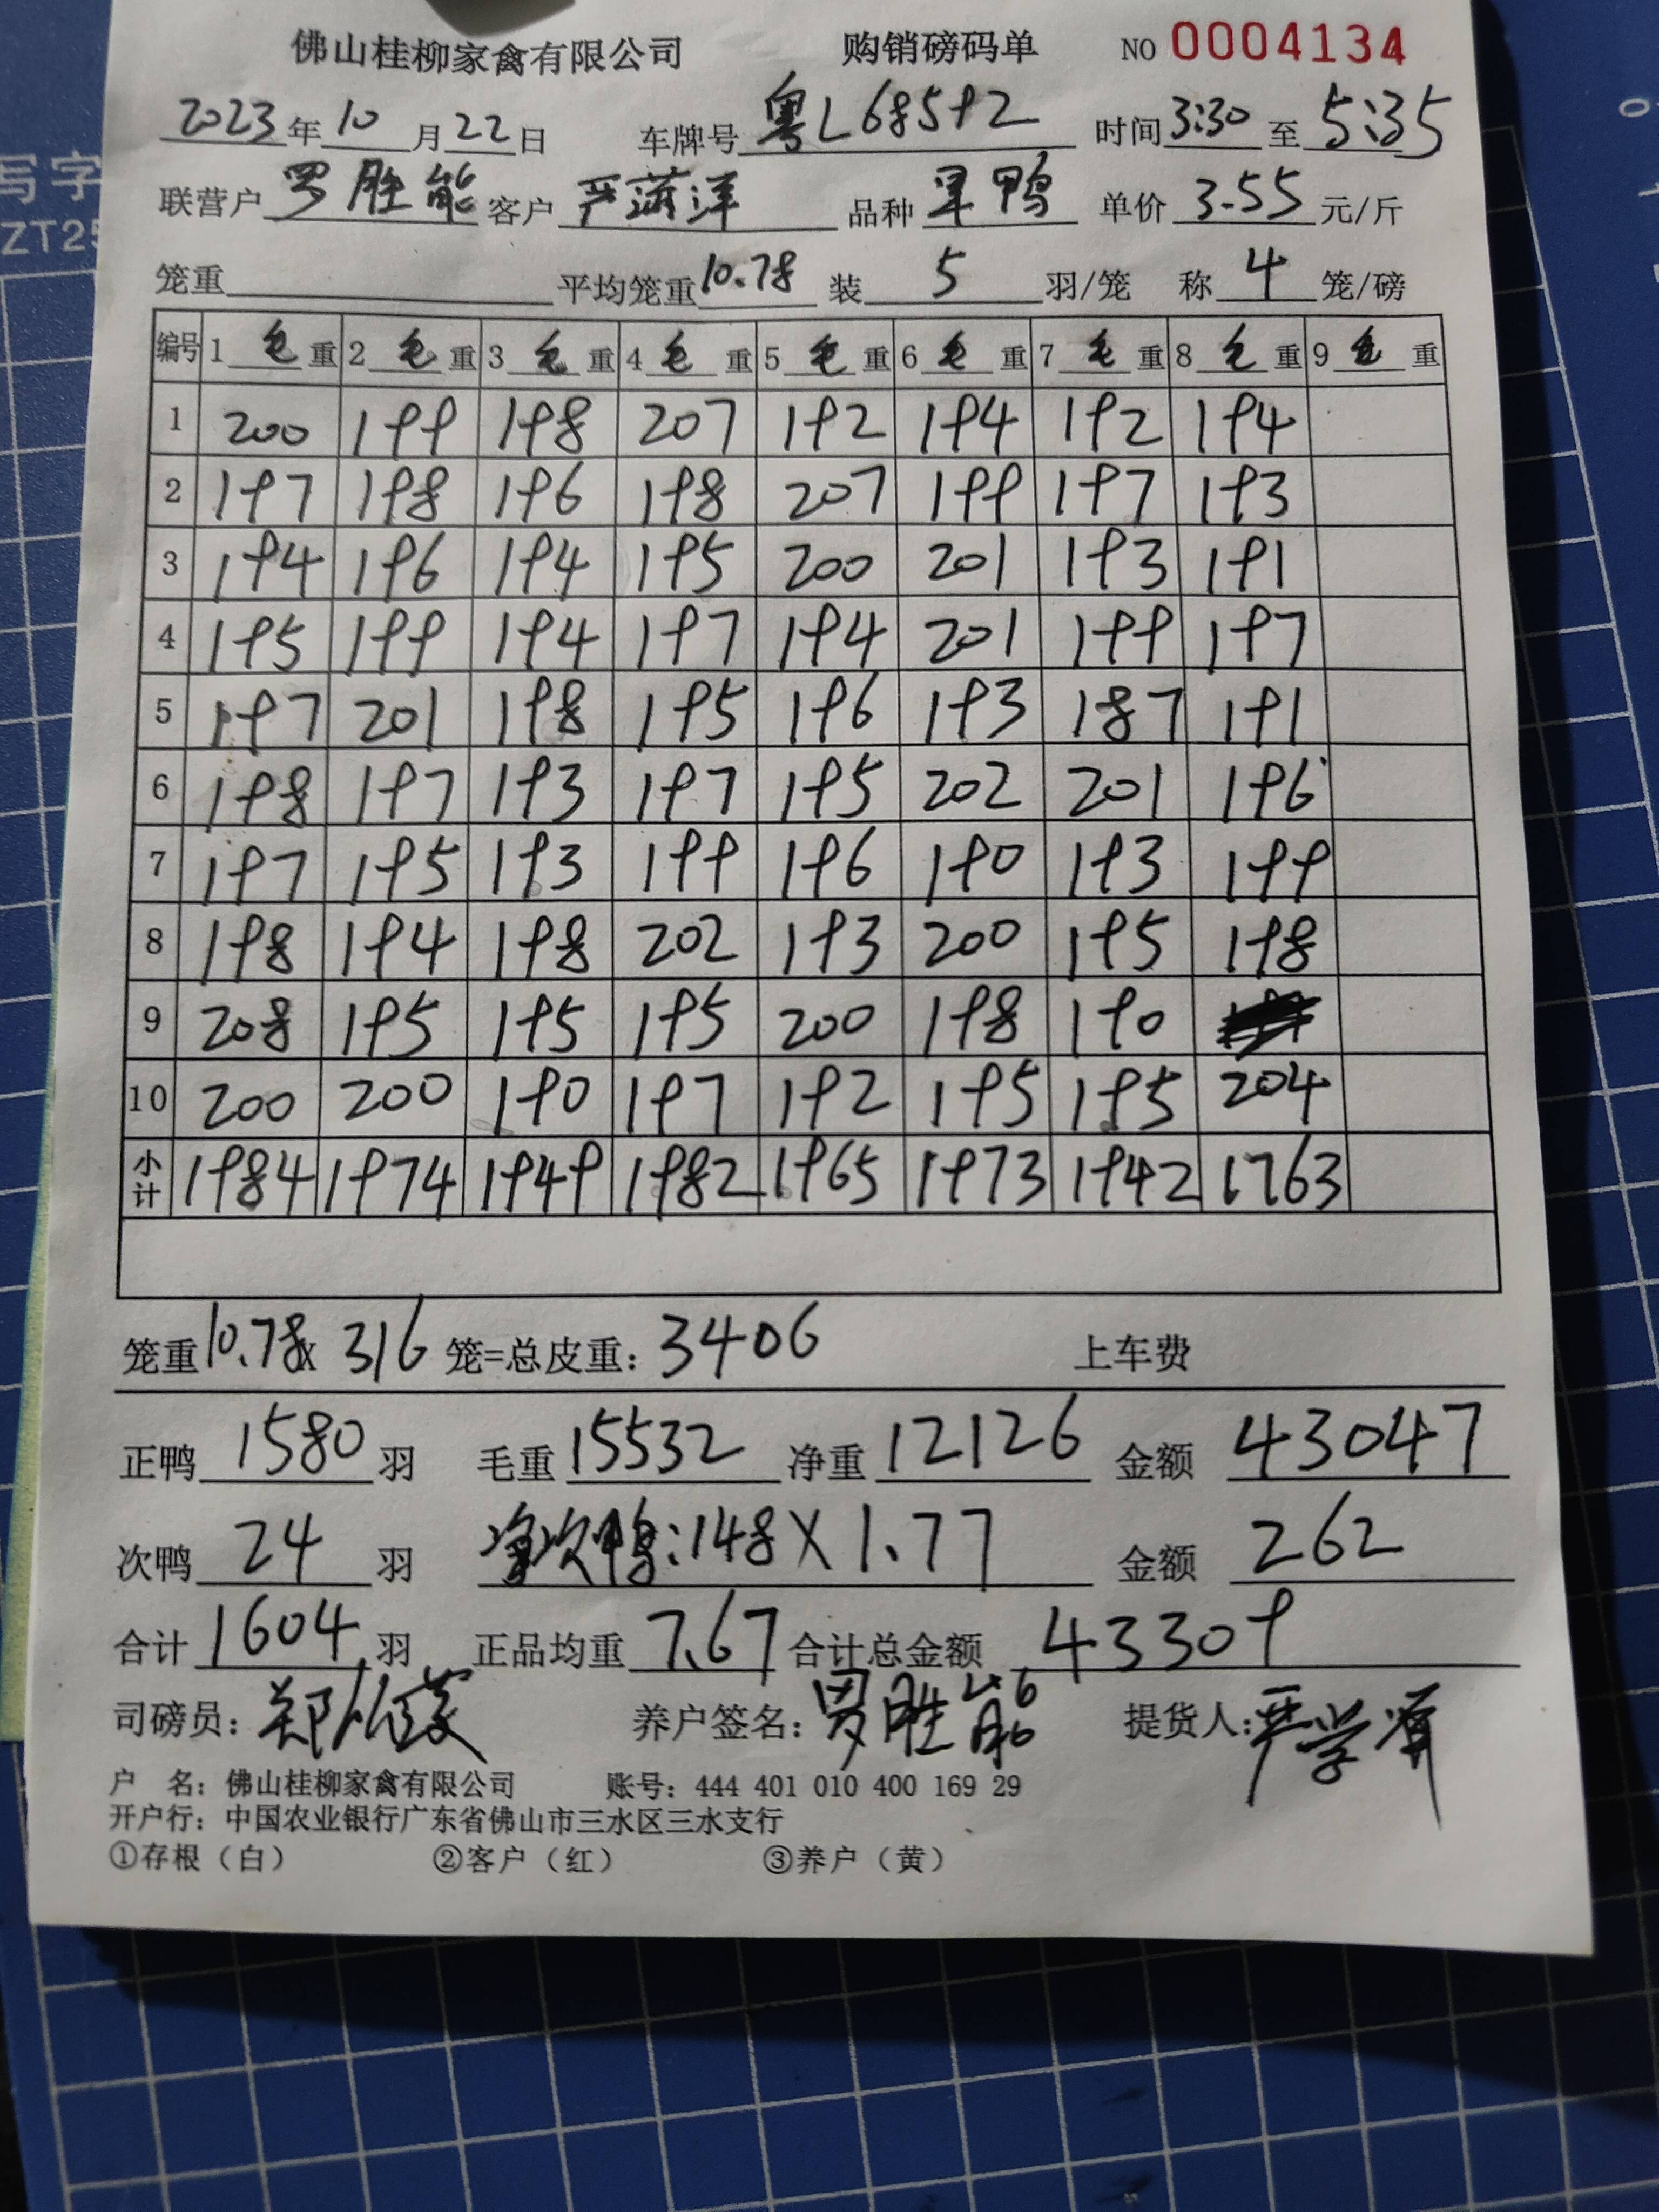 佛山桂柳家禽有限公司 购销磅码单 NO 0004134
2023年10月22日 车牌号 粤L68592 时间 3:30 至 5:35
联营户 罗胜能 客户 严 洋 品种 鸭 单价 3.55 元/斤
笼重 平均笼重 10.78 装 5 羽/笼 称 4 笼/磅
编号 1 毛 重 2 毛 重 3 毛 重 4 毛 重 5 毛 重 6 毛 重 7 毛 重 8 毛 重 9 毛 重
1 200 199 198 207 192 194 192 194
2 197 198 196 198 207 199 197 193
3 194 196 194 195 200 201 193 191
4 195 199 194 197 194 201 199 197
5 197 201 198 195 196 193 187 191
6 198 197 193 197 195 202 201 196
7 197 195 193 199 196 190 193 199
8 198 194 198 202 193 200 195 198
9 208 195 195 195 200 198 190
10 200 200 190 197 192 195 195 204
小计 1984 1974 1949 1982 1965 1973 1942 1763
笼重 10.78 x 316 笼=总皮重: 3406 上车费
正鸭 1580 羽 毛重 15532 净重 12126 金额 43047
次鸭 24 羽 次鸭:148 X 1.77 金额 262
合计 1604 羽 正品均重 7.67 合计总金额 43309
司磅员: 郑 养户签名: 罗胜能 提货人: 严学
户 名: 佛山桂柳家禽有限公司 账号: 444 401 010 400 169 29
开户行: 中国农业银行广东省佛山市三水区三水支行
①存根（白） ②客户（红） ③养户（黄）
写字